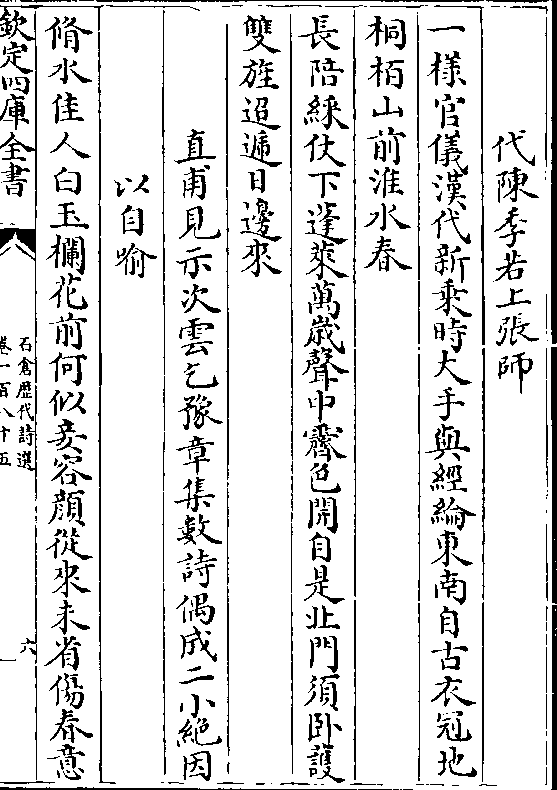 代陳季若上張師
一樣官儀漢代新乘時大手與經綸東南自古衣冠地
桐栢山前淮水春
長陪綵仗下蓬萊萬歳聲中霽色開自是北門須卧護
雙旌迢遞日邊來
直甫見示次雲乞豫章集數詩偶成二小絶因
以自喻
脩水佳人白玉欄花前何似妾容顔從來未省傷春意
欽定四庫全書
石倉歴代詩選
卷一百八十五
六